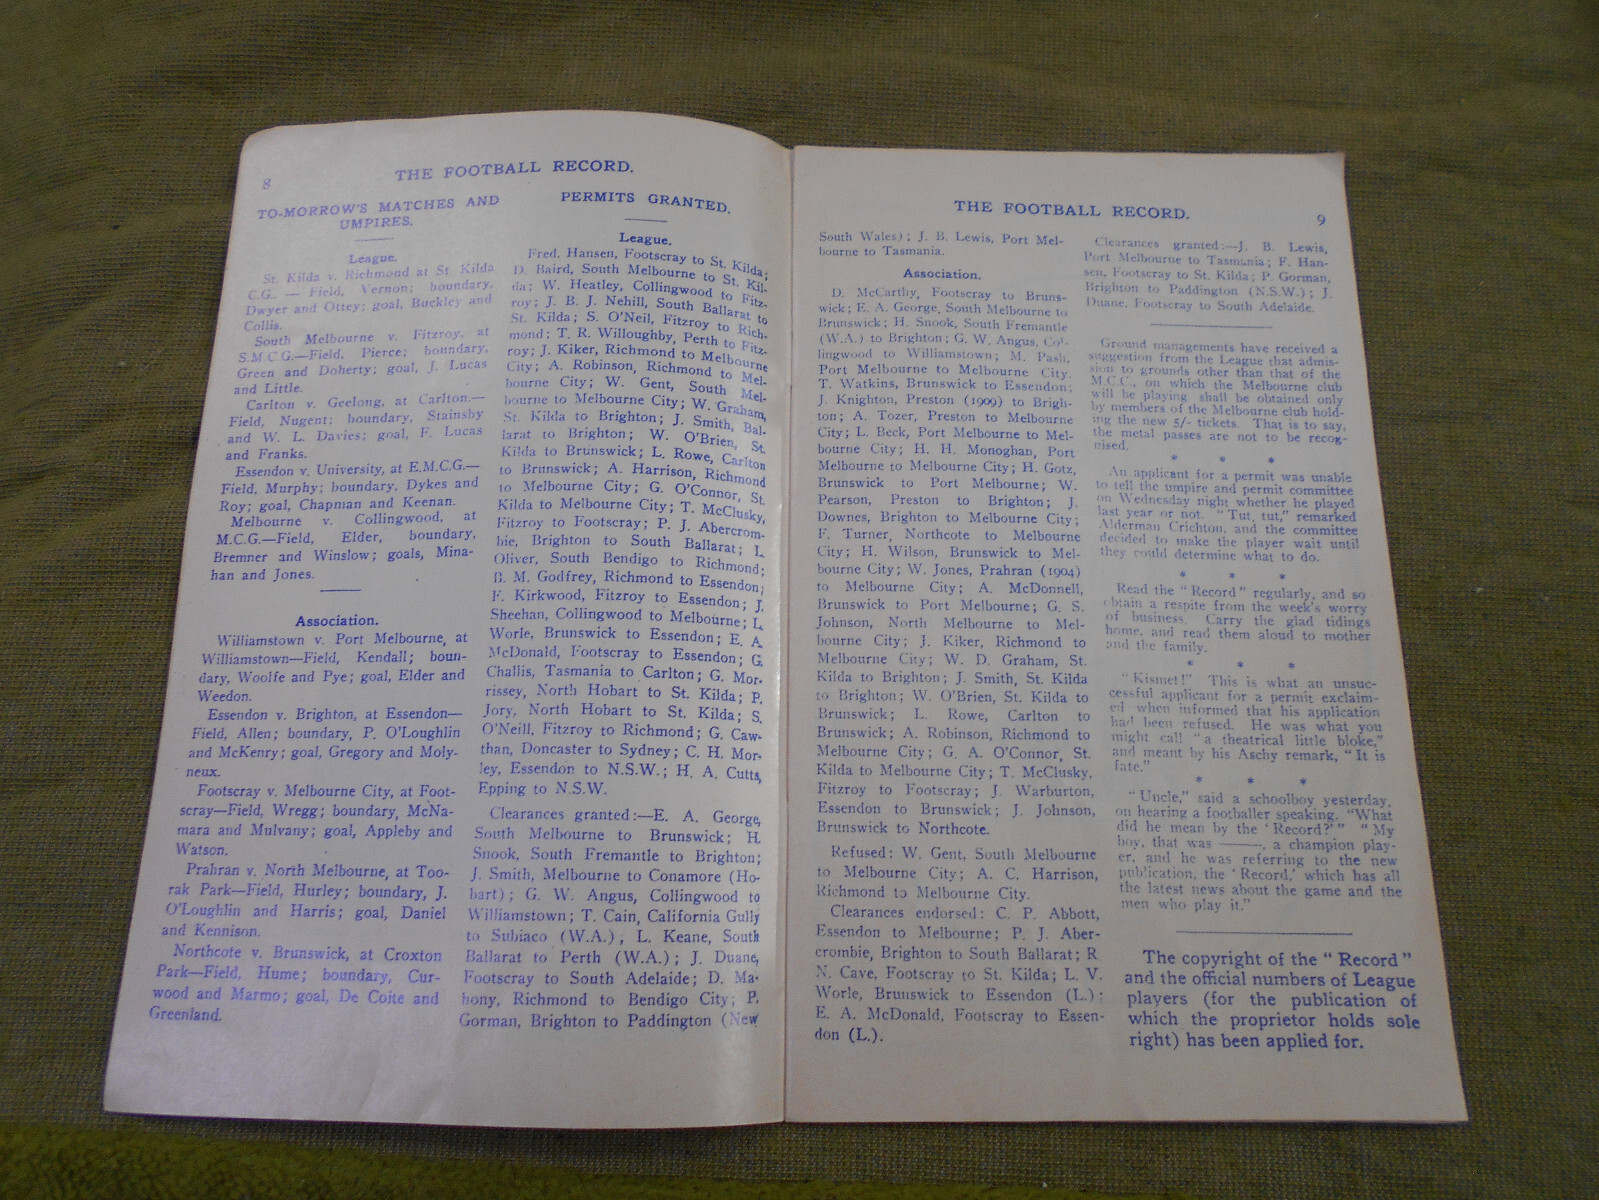 8
THE FOOTBALL RECORD.
TO-MORROW'S MATCHES AND
UMPIRES.
League.
St. Kilda v. Richmond at St Kilda
C.G. — Field, Vernon; boundary,
Dwyer and Ottey; goal, Buckley and
Collis.
South Melbourne v. Fitzroy, at
S.M.C.G.—Field, Pierce; boundary,
Green and Doherty; goal, J. Lucas
and Little.
Carlton v. Geelong, at Carlton.—
Field, Nugent; boundary, Stainsby
and W. L. Davies; goal, F. Lucas
and Franks.
Essendon v. University, at E.M.C.G.—
Field, Murphy; boundary, Dykes and
Roy; goal, Chapman and Keenan.
Melbourne v. Collingwood, at
M.C.G.—Field, Elder, boundary,
Bremner and Winslow; goals, Mina-
han and Jones.
Association.
Williamstown v. Port Melbourne, at
Williamstown—Field, Kendall; boun-
dary, Woolfe and Pye; goal, Elder and
Weedon.
Essendon v. Brighton, at Essendon—
Field, Allen; boundary, P. O'Loughlin
and McKenry; goal, Gregory and Moly-
neux.
Footscray v. Melbourne City, at Foot-
scray—Field, Wregg; boundary, McNa-
mara and Mulvany; goal, Appleby and
Watson.
Prahran v. North Melbourne, at Too-
rak Park—Field, Hurley; boundary, J.
O'Loughlin and Harris; goal, Daniel
and Kennison.
Northcote v. Brunswick, at Croxton
Park—Field, Hume; boundary, Cur-
wood and Marmo; goal, De Coite and
Greenland.
PERMITS GRANTED.
League.
Fred. Hansen, Footscray to St. Kilda;
D. Baird, South Melbourne to St. Kil-
da; W. Heatley, Collingwood to Fitz-
roy; J. B. J. Nehill, South Ballarat to
St. Kilda; S. O'Neil, Fitzroy to Rich-
mond; T. R. Willoughby, Perth to Fitz-
roy; J. Kiker, Richmond to Melbourne
City; A. Robinson, Richmond to Mel-
bourne City; W. Gent, South Mel-
bourne to Melbourne City; W. Graham,
St. Kilda to Brighton; J. Smith, Bal-
larat to Brighton; W. O'Brien, St.
Kilda to Brunswick; L. Rowe, Carlton
to Brunswick; A. Harrison, Richmond
to Melbourne City; G. O'Connor, St.
Kilda to Melbourne City; T. McClusky,
Fitzroy to Footscray; P. J. Abercrom-
bie, Brighton to South Ballarat; L.
Oliver, South Bendigo to Richmond;
B. M. Godfrey, Richmond to Essendon;
F. Kirkwood, Fitzroy to Essendon; J.
Sheehan, Collingwood to Melbourne; L.
Worle, Brunswick to Essendon; E. A.
McDonald, Footscray to Essendon; G.
Challis, Tasmania to Carlton; G. Mor-
rissey, North Hobart to St. Kilda; P.
Jory, North Hobart to St. Kilda; S.
O'Neill, Fitzroy to Richmond; G. Caw-
than, Doncaster to Sydney; C. H. Mor-
ley, Essendon to N.S.W.; H. A. Cutts,
Epping to N.S.W.
Clearances granted:—E. A. George,
South Melbourne to Brunswick; H.
Snook, South Fremantle to Brighton;
J. Smith, Melbourne to Conamore (Ho-
bart); G. W. Angus, Collingwood to
Williamstown; T. Cain, California Gully
to Subiaco (W.A.), L. Keane, South
Ballarat to Perth (W.A.); J. Duane,
Footscray to South Adelaide; D. Ma-
hony, Richmond to Bendigo City; P.
Gorman, Brighton to Paddington (New
THE FOOTBALL RECORD.
9
South Wales); J. B. Lewis, Port Mel-
bourne to Tasmania.
Association.
D. McCarthy, Footscray to Bruns-
wick; E. A. George, South Melbourne to
Brunswick; H. Snook, South Fremantle
(W.A.) to Brighton; G. W. Angus, Col-
lingwood to Williamstown; M. Pash,
Port Melbourne to Melbourne City.
T. Watkins, Brunswick to Essendon;
J. Knighton, Preston (1909) to Brigh-
ton; A. Tozer, Preston to Melbourne
City; L. Beck, Port Melbourne to Mel-
bourne City; H. H. Monoghan, Port
Melbourne to Melbourne City; H. Gotz,
Brunswick to Port Melbourne; W.
Pearson, Preston to Brighton; J.
Downes, Brighton to Melbourne City;
F. Turner, Northcote to Melbourne
City; H. Wilson, Brunswick to Mel-
bourne City; W. Jones, Prahran (1904)
to Melbourne City; A. McDonnell,
Brunswick to Port Melbourne; G. S.
Johnson, North Melbourne to Mel-
bourne City; J. Kiker, Richmond to
Melbourne City; W. D. Graham, St.
Kilda to Brighton; J. Smith, St. Kilda
to Brighton; W. O'Brien, St. Kilda to
Brunswick; L. Rowe, Carlton to
Brunswick; A. Robinson, Richmond to
Melbourne City; G. A. O'Connor, St.
Kilda to Melbourne City; T. McClusky,
Fitzroy to Footscray; J. Warburton,
Essendon to Brunswick; J. Johnson,
Brunswick to Northcote.
Refused: W. Gent, South Melbourne
to Melbourne City; A. C. Harrison,
Richmond to Melbourne City.
Clearances endorsed: C. P. Abbott,
Essendon to Melbourne; P. J. Aber-
crombie, Brighton to South Ballarat; R
N. Cave, Footscray to St. Kilda; L. V.
Worle, Brunswick to Essendon (L.);
E. A. McDonald, Footscray to Essen-
don (L.).
Clearances granted:—J. B. Lewis,
Port Melbourne to Tasmania; F. Han-
sen, Footscray to St. Kilda; P. Gorman,
Brighton to Paddington (N.S.W.); J.
Duane, Footscray to South Adelaide.
Ground managements have received a
suggestion from the League that admis-
sion to grounds other than that of the
M.C.C., on which the Melbourne club
will be playing shall be obtained only
by members of the Melbourne club hold-
ing the new 5/- tickets. That is to say,
the metal passes are not to be recog-
nised.
* * *
An applicant for a permit was unable
to tell the umpire and permit committee
on Wednesday night whether he played
last year or not. "Tut, tut," remarked
Alderman Crichton, and the committee
decided to make the player wait until
they could determine what to do.
* * *
Read the "Record" regularly, and so
obtain a respite from the week's worry
of business. Carry the glad tidings
home, and read them aloud to mother
and the family.
* * *
"Kismet!" This is what an unsuc-
cessful applicant for a permit exclaim-
ed when informed that his application
had been refused. He was what you
might call "a theatrical little bloke,"
and meant by his Aschy remark, "It is
fate."
* * *
"Uncle," said a schoolboy yesterday,
on hearing a footballer speaking. "What
did he mean by the 'Record?'" "My
boy, that was ———, a champion play-
er, and he was referring to the new
publication, the 'Record,' which has all
the latest news about the game and the
men who play it."
The copyright of the "Record"
and the official numbers of League
players (for the publication of
which the proprietor holds sole
right) has been applied for.